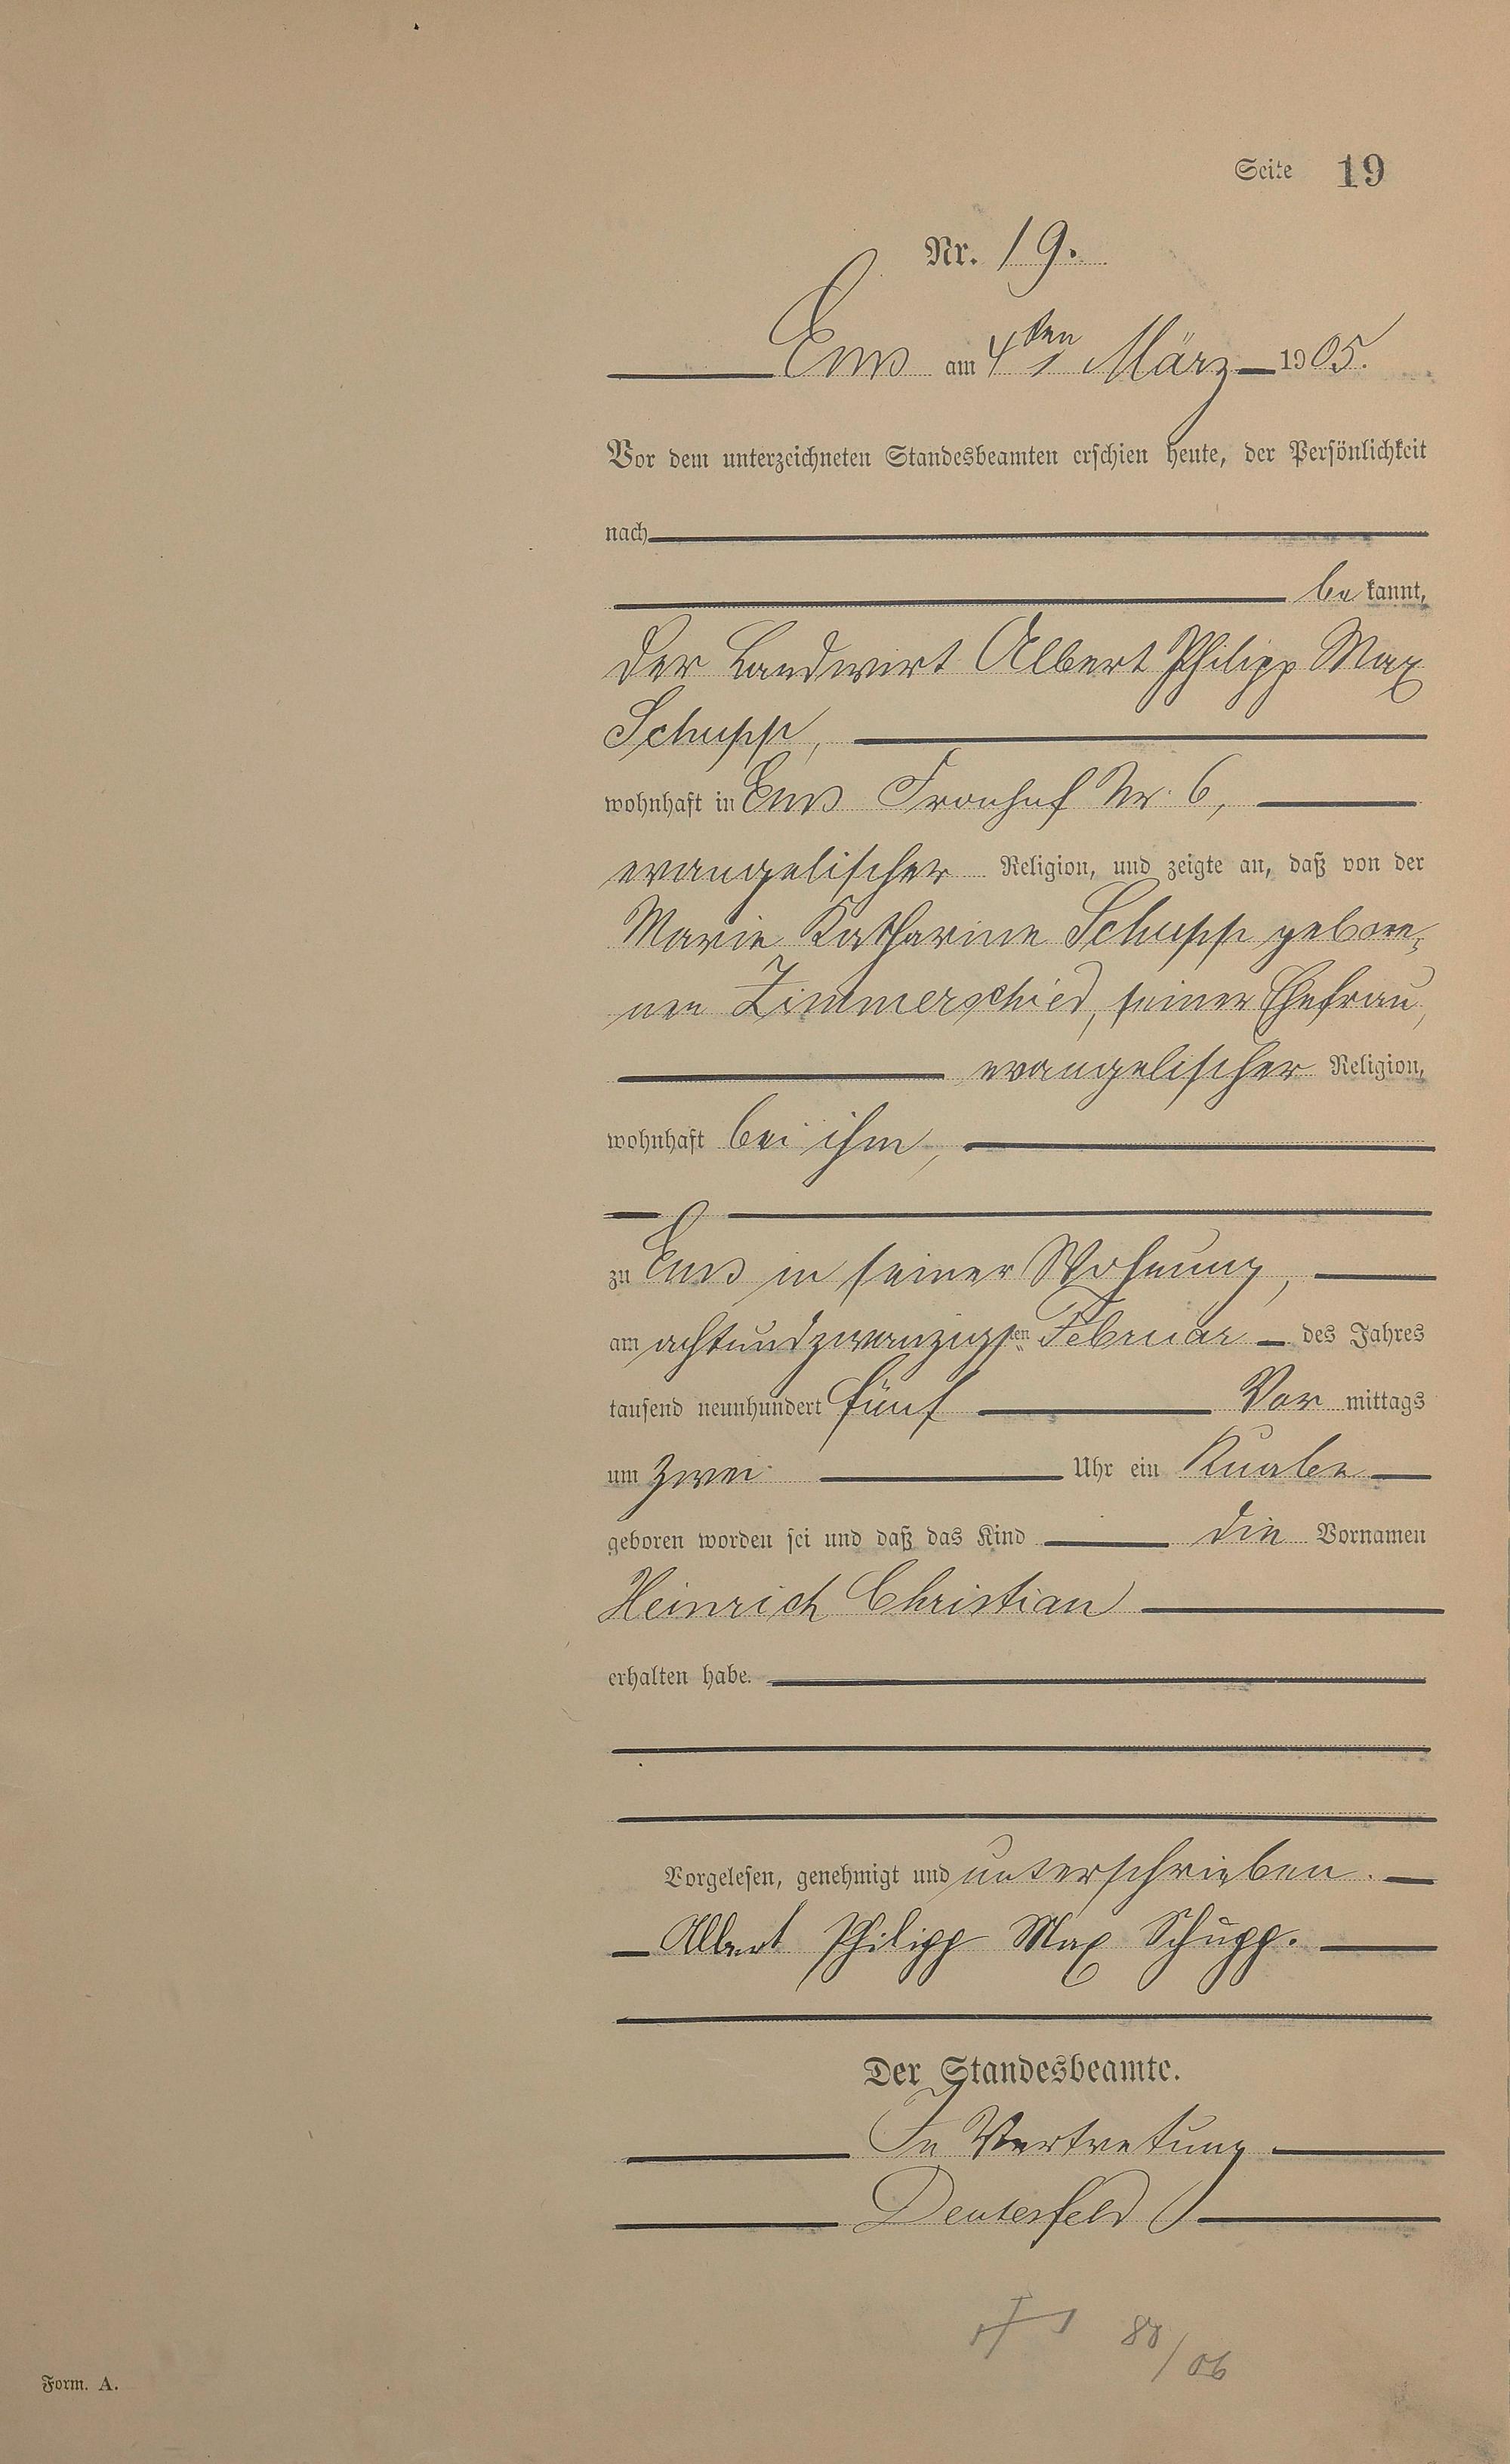 Seite 19
Nr. 19.
Ems am 4ten März 1905.
Vor dem unterzeichneten Standesbeamten erschien heute, der Persönlichkeit
nach
be kannt,
der Landwirt Albert Philipp Max
Schupp,
wohnhaft in Ems Fronhof Nr. 6,
evangelischer Religion, und zeigte an, daß von der
Marie Katharine Schupp gebore-
nen Zimmerschied, seiner Ehefrau,
evangelischer Religion,
wohnhaft bei ihm,
zu Ems in seiner Wohnung,
am achtundzwanzigsten Februar des Jahres
tausend neunhundert fünf Vor mittags
um zwei Uhr ein Knabe
geboren worden sei und daß das Kind die Vornamen
Heinrich Christian
erhalten habe.
Vorgelesen, genehmigt und unterschrieben.
Albert Philipp Max Schupp.
Der Standesbeamte.
In Vertretung
Deutesfeld
80/06
Form. A.